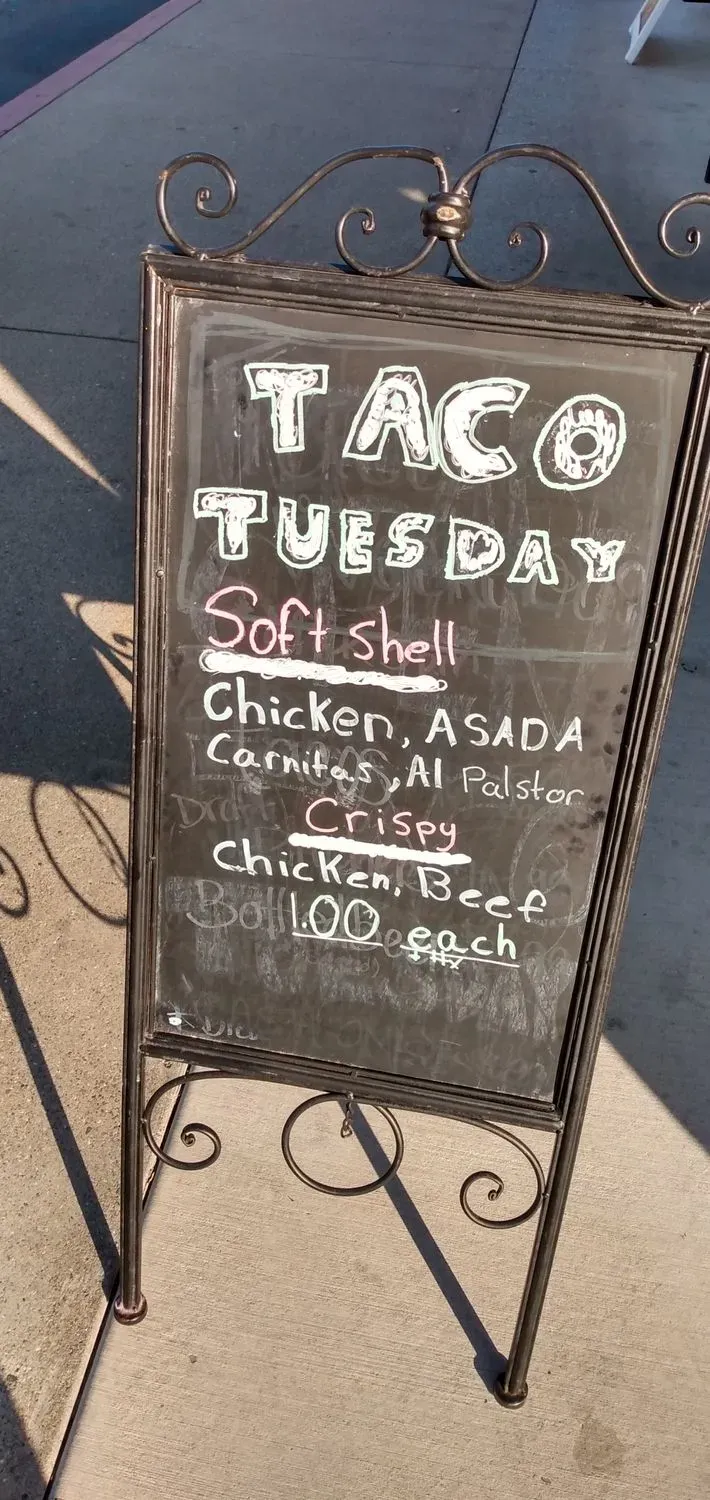 TACO
TUESDAY
Soft Shell
Chicken, ASADA
Carnitas, Al Palstor
Crispy
Chicken, Beef
1.00 each